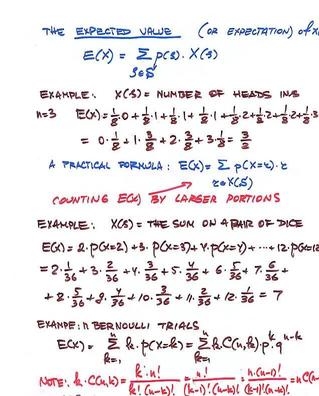 THE EXPECTED VALUE (OR EXPECTATION) of X
E(X) = Σ p(s) · X(s)
s∈S
EXAMPLE: X(s) = NUMBER OF HEADS IN S
n=3 E(X) = 1/8·0 + 1/8·1 + 1/8·1 + 1/8·1 + 1/8·2 + 1/8·2 + 1/8·2 + 1/8·3
= 0·1/8 + 1·3/8 + 2·3/8 + 3·1/8 = 3/2
A PRACTICAL FORMULA: E(X) = Σ p(X=r)·r
r∈X(S)
COUNTING E(X) BY LARGER PORTIONS
EXAMPLE: X(s) = THE SUM ON A PAIR OF DICE
E(X) = 2·p(X=2) + 3·p(X=3) + 4·p(X=4) + ··· + 12·p(X=12
= 2·1/36 + 3·2/36 + 4·3/36 + 5·4/36 + 6·5/36 + 7·6/36 +
+ 8·5/36 + 9·4/36 + 10·3/36 + 11·2/36 + 12·1/36 = 7
EXAMPE: n BERNOULLI TRIALS
E(X) = Σ k·p(X=k) = Σ k·C(n,k)·p^k·q^n-k
NOTE: k·C(n,k) = k·n!/k!(n-k)! = n!/(k-1)!(n-k)! = n·(n-1)!/(k-1)!(n-k)! = nC(n-